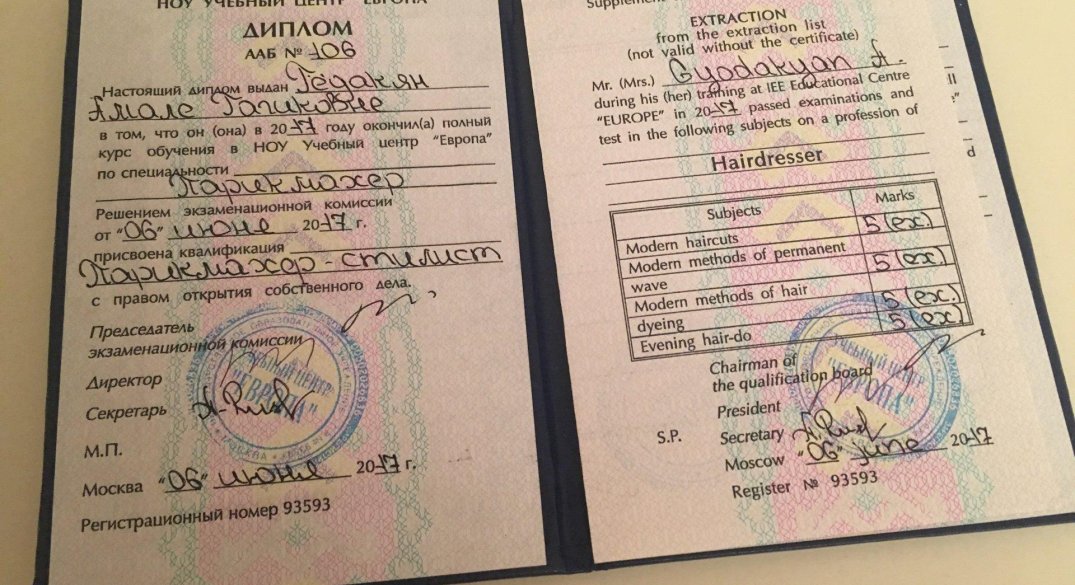 НОУ УЧЕБНЫЙ ЦЕНТР "ЕВРОПА"
ДИПЛОМ
ААБ № 106
Настоящий диплом выдан Гёдакян
Амале Гагиковне
в том, что он (она) в 2017 году окончил(а) полный
курс обучения в НОУ Учебный центр "Европа"
по специальности
Парикмахер
Решением экзаменационной комиссии
от "06" июня 2017 г.
присвоена квалификация
Парикмахер-стилист
с правом открытия собственного дела.
Председатель
экзаменационной комиссии
Директор
Секретарь
М.П.
Москва "06" июня 2017 г.
Регистрационный номер 93593
УЧЕБНЫЙ ЦЕНТР
"ЕВРОПА"
МОСКВА
Supplement
EXTRACTION
from the extraction list
(not valid without the certificate)
Mr. (Mrs.) Gyodakyan A.
during his (her) training at IEE Educational Centre
"EUROPE" in 2017 passed examinations and
test in the following subjects on a profession of
Hairdresser
Subjects Marks
Modern haircuts 5 (ex.)
Modern methods of permanent
wave 5 (ex)
Modern methods of hair
dyeing 5 (ex.
Evening hair-do 5 (ex)
Chairman of
the qualification board
President
S.P. Secretary
Moscow "06" june 2017
Register № 93593
УЧЕБНЫЙ ЦЕНТР
"ЕВРОПА"